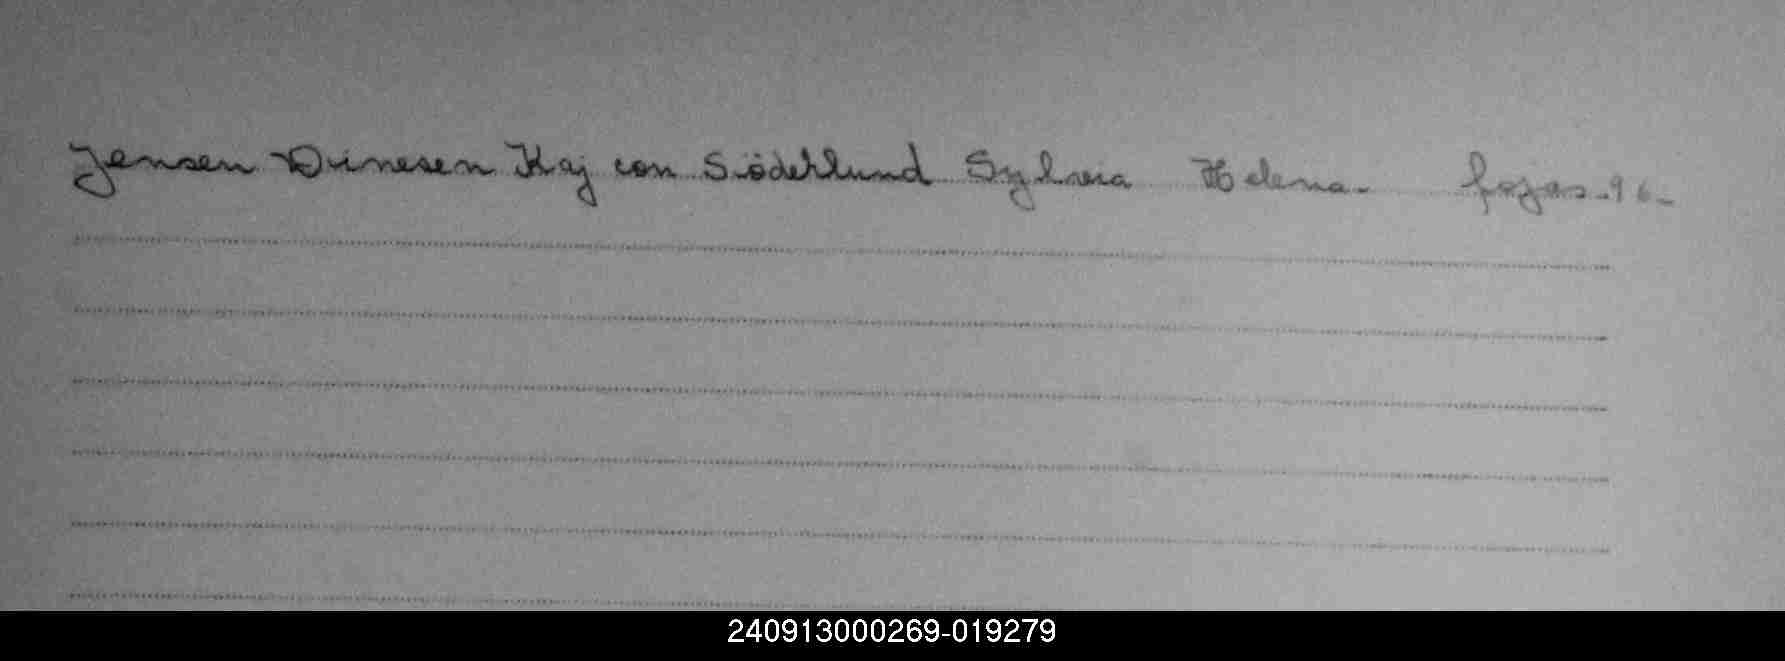 Jensen Dinesen Kaj con Söderlund Sylvia Helena. fojas. 96.
240913000269-019279